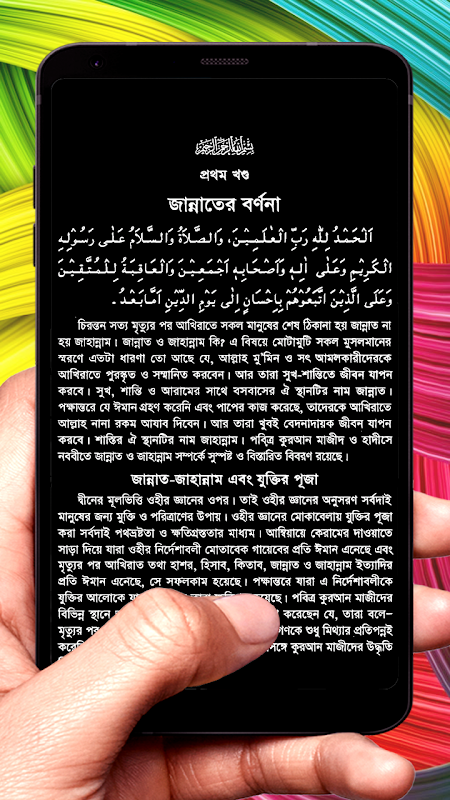 بسم الله الرحمن الرحيم
প্রথম খণ্ড
জান্নাতের বর্ণনা
اَلْحَمْدُ لِلّٰهِ رَبِّ الْعٰلَمِيْنَ، وَالصَّلَاةُ وَالسَّلَامُ عَلٰى رَسُوْلِهِ
الْكَرِيْمِ وَعَلٰى اٰلِهٖ وَاَصْحَابِهٖ اَجْمَعِيْنَ وَالْعَاقِبَةُ لِلْمُتَّقِيْنَ
وَعَلَى الَّذِيْنَ اتَّبَعُوْهُمْ بِاِحْسَانٍ اِلٰى يَوْمِ الدِّيْنِ اَمَّابَعْدُ ـ
চিরন্তন সত্য মৃত্যুর পর আখিরাতে সকল মানুষের শেষ ঠিকানা হয় জান্নাত না
হয় জাহান্নাম। জান্নাত ও জাহান্নাম কি? এ বিষয়ে মোটামুটি সকল মুসলমানের
স্মরণে এতটা ধারণা তো আছে যে, আল্লাহ মু'মিন ও সৎ আমলকারীদেরকে
আখিরাতে পুরস্কৃত ও সম্মানিত করবেন। আর তারা সুখ-শান্তিতে জীবন যাপন
করবে। সুখ, শান্তি ও আরামের সাথে বসবাসের ঐ স্থানটির নাম জান্নাত।
পক্ষান্তরে যে ঈমান গ্রহণ করেনি এবং পাপের কাজ করেছে, তাদেরকে আখিরাতে
আল্লাহ নানা রকম আযাব দিবেন। আর তারা খুবই বেদনাদায়ক জীবন যাপন
করবে। শাস্তির ঐ স্থানটির নাম জাহান্নাম। পবিত্র কুরআন মাজীদ ও হাদীসে
নববীতে জান্নাত ও জাহান্নাম সম্পর্কে সুস্পষ্ট ও বিস্তারিত বিবরণ রয়েছে।
জান্নাত-জাহান্নাম এবং যুক্তির পূজা
দ্বীনের মূলভিত্তি ওহীর জ্ঞানের ওপর। তাই ওহীর জ্ঞানের অনুসরণ সর্বদাই
মানুষের জন্য মুক্তি ও পরিত্রাণের উপায়। ওহীর জ্ঞানের মোকাবেলায় যুক্তির পূজা
করা সর্বদাই পথভ্রষ্টতা ও ক্ষতিগ্রস্ততার মাধ্যম। আম্বিয়ায়ে কেরামের দাওয়াতে
সাড়া দিয়ে যারা ওহীর নির্দেশাবলী মোতাবেক গায়েবের প্রতি ঈমান এনেছে এবং
মৃত্যুর পর আখিরাত তথা হাশর, হিসাব, কিতাব, জান্নাত ও জাহান্নাম ইত্যাদির
প্রতি ঈমান এনেছে, সে সফলকাম হয়েছে। পক্ষান্তরে যারা এ নির্দেশাবলীকে
যুক্তির আলোকে যা
পবিত্র কুরআন মাজীদের
বিভিন্ন স্থানে করেছেন যে, তারা বলে–
মৃত্যুর পর শুধু মিথ্যার প্রতিপন্নই
কুরআন মাজীদের উদ্ধৃতি